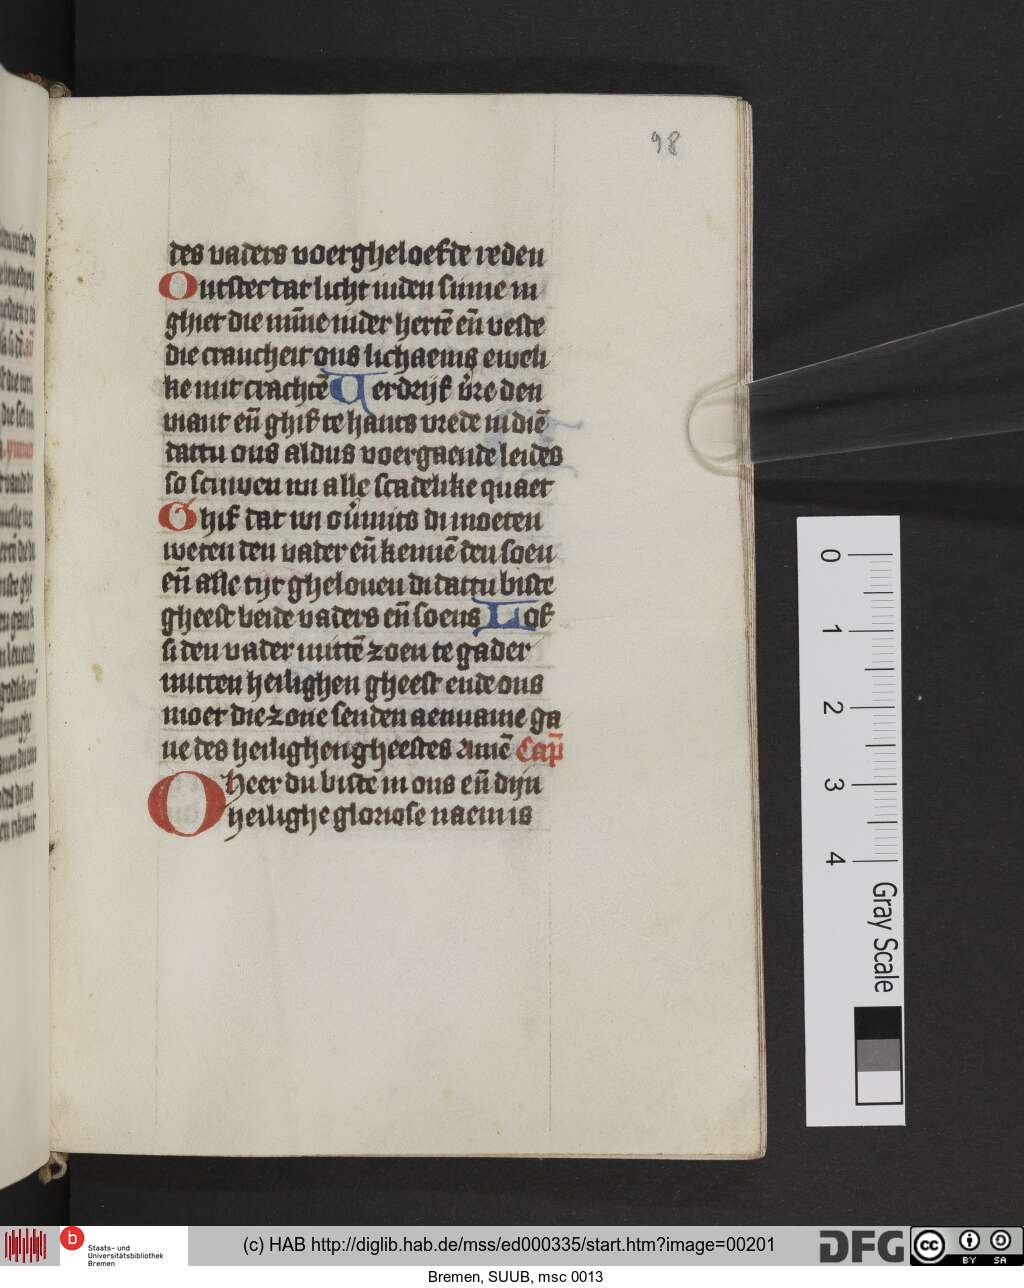 98
des vaders voergheloefde reden
Ontstect dat licht inden sinne in
ghiet die mīne inder hertē eñ veste
die crancheit ons lichaems eweli
ke mit crachtē Verdrijf v̓re den
viant eñ ghif te hants vrede in diē
dattu ons aldus voergaende leides
so scuwen wi alle scadelike quaet
Ghif dat wi ov̓mits di moeten
weten den vader eñ kennē den soen
eñ alle tijt gheloven di dattu biste
gheest beide vaders eñ soens Lof
si den vader mittē zoen te gader
mitten heilighen gheest ende ons
moet die zone senden aenname ga
ve des heilighen gheestes Amē Cap̄
O heer du biste in ons eñ dijn
heilighe gloriose naem is
0
1
2
3
4
Gray Scale
b
Staats- und
Universitätsbibliothek
Bremen
(c) HAB http://diglib.hab.de/mss/ed000335/start.htm?image=00201
DFG
cc
BY SA
Bremen, SUUB, msc 0013